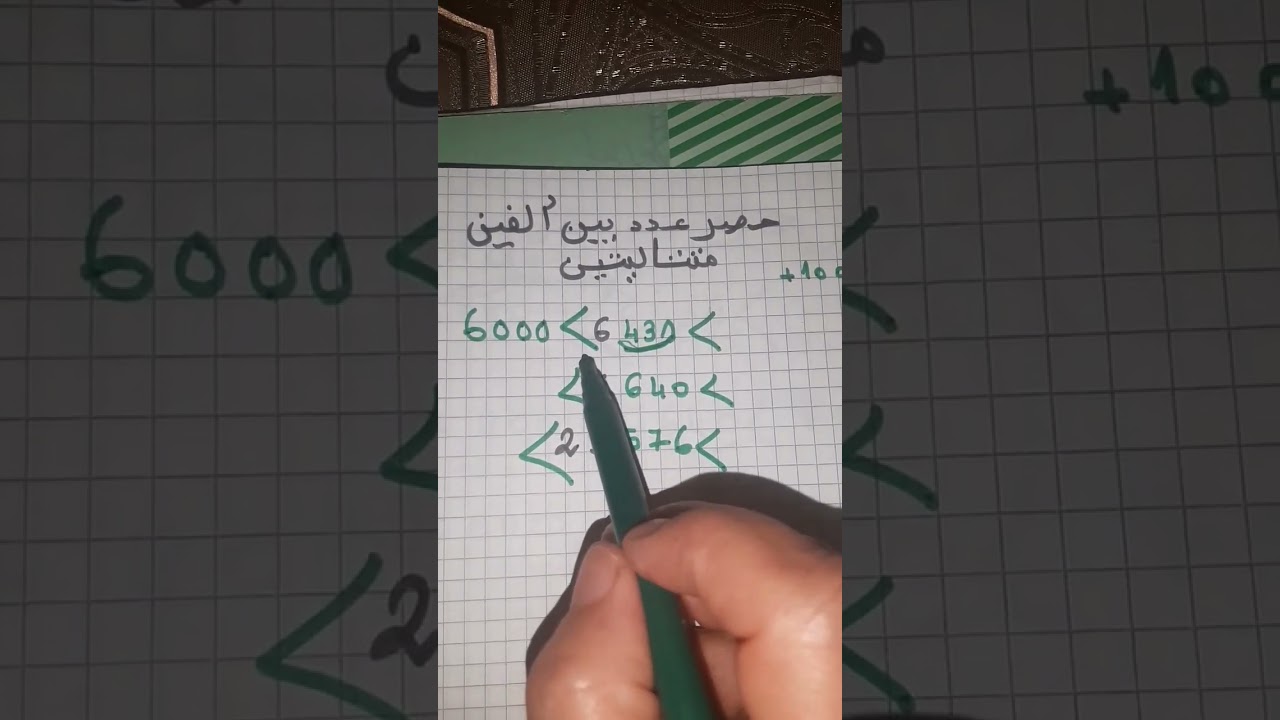 حصر عدد بين ألفين
متتاليتين
+100
6000 < 6 430 <
< 640 <
< 2 576 <